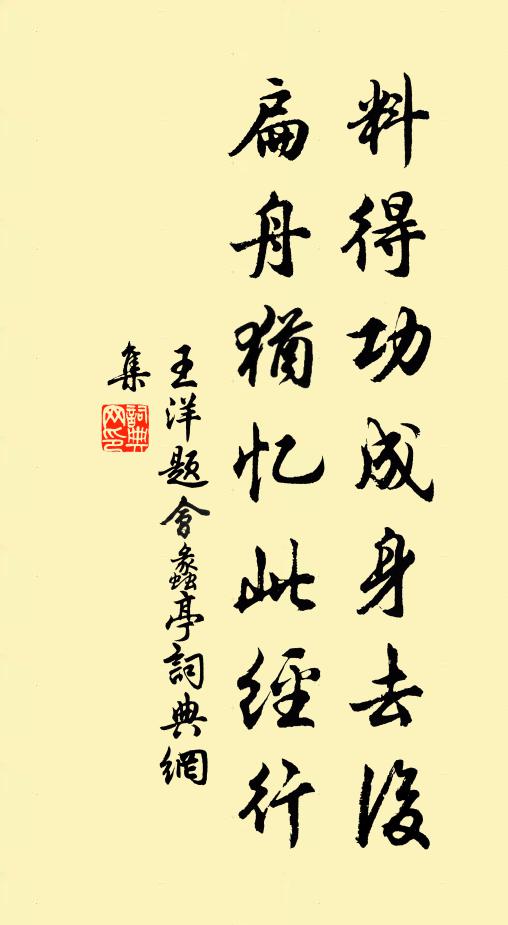 料得功成身去後
扁舟猶忆此經行
王洋題會蠡亭詞典網
集
詞典网印